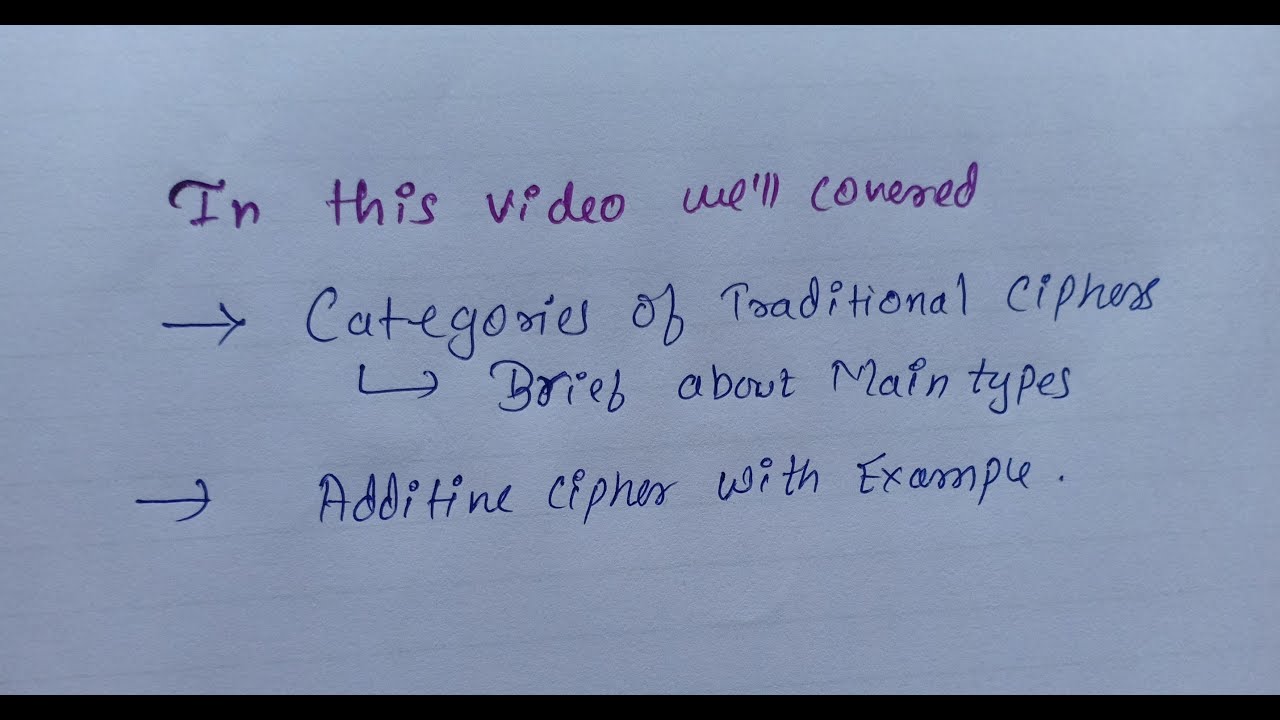 In this video we'll covered
→ Categories of Traditional Ciphers
↳ Brief about Main types
→ Additive Cipher with Example.